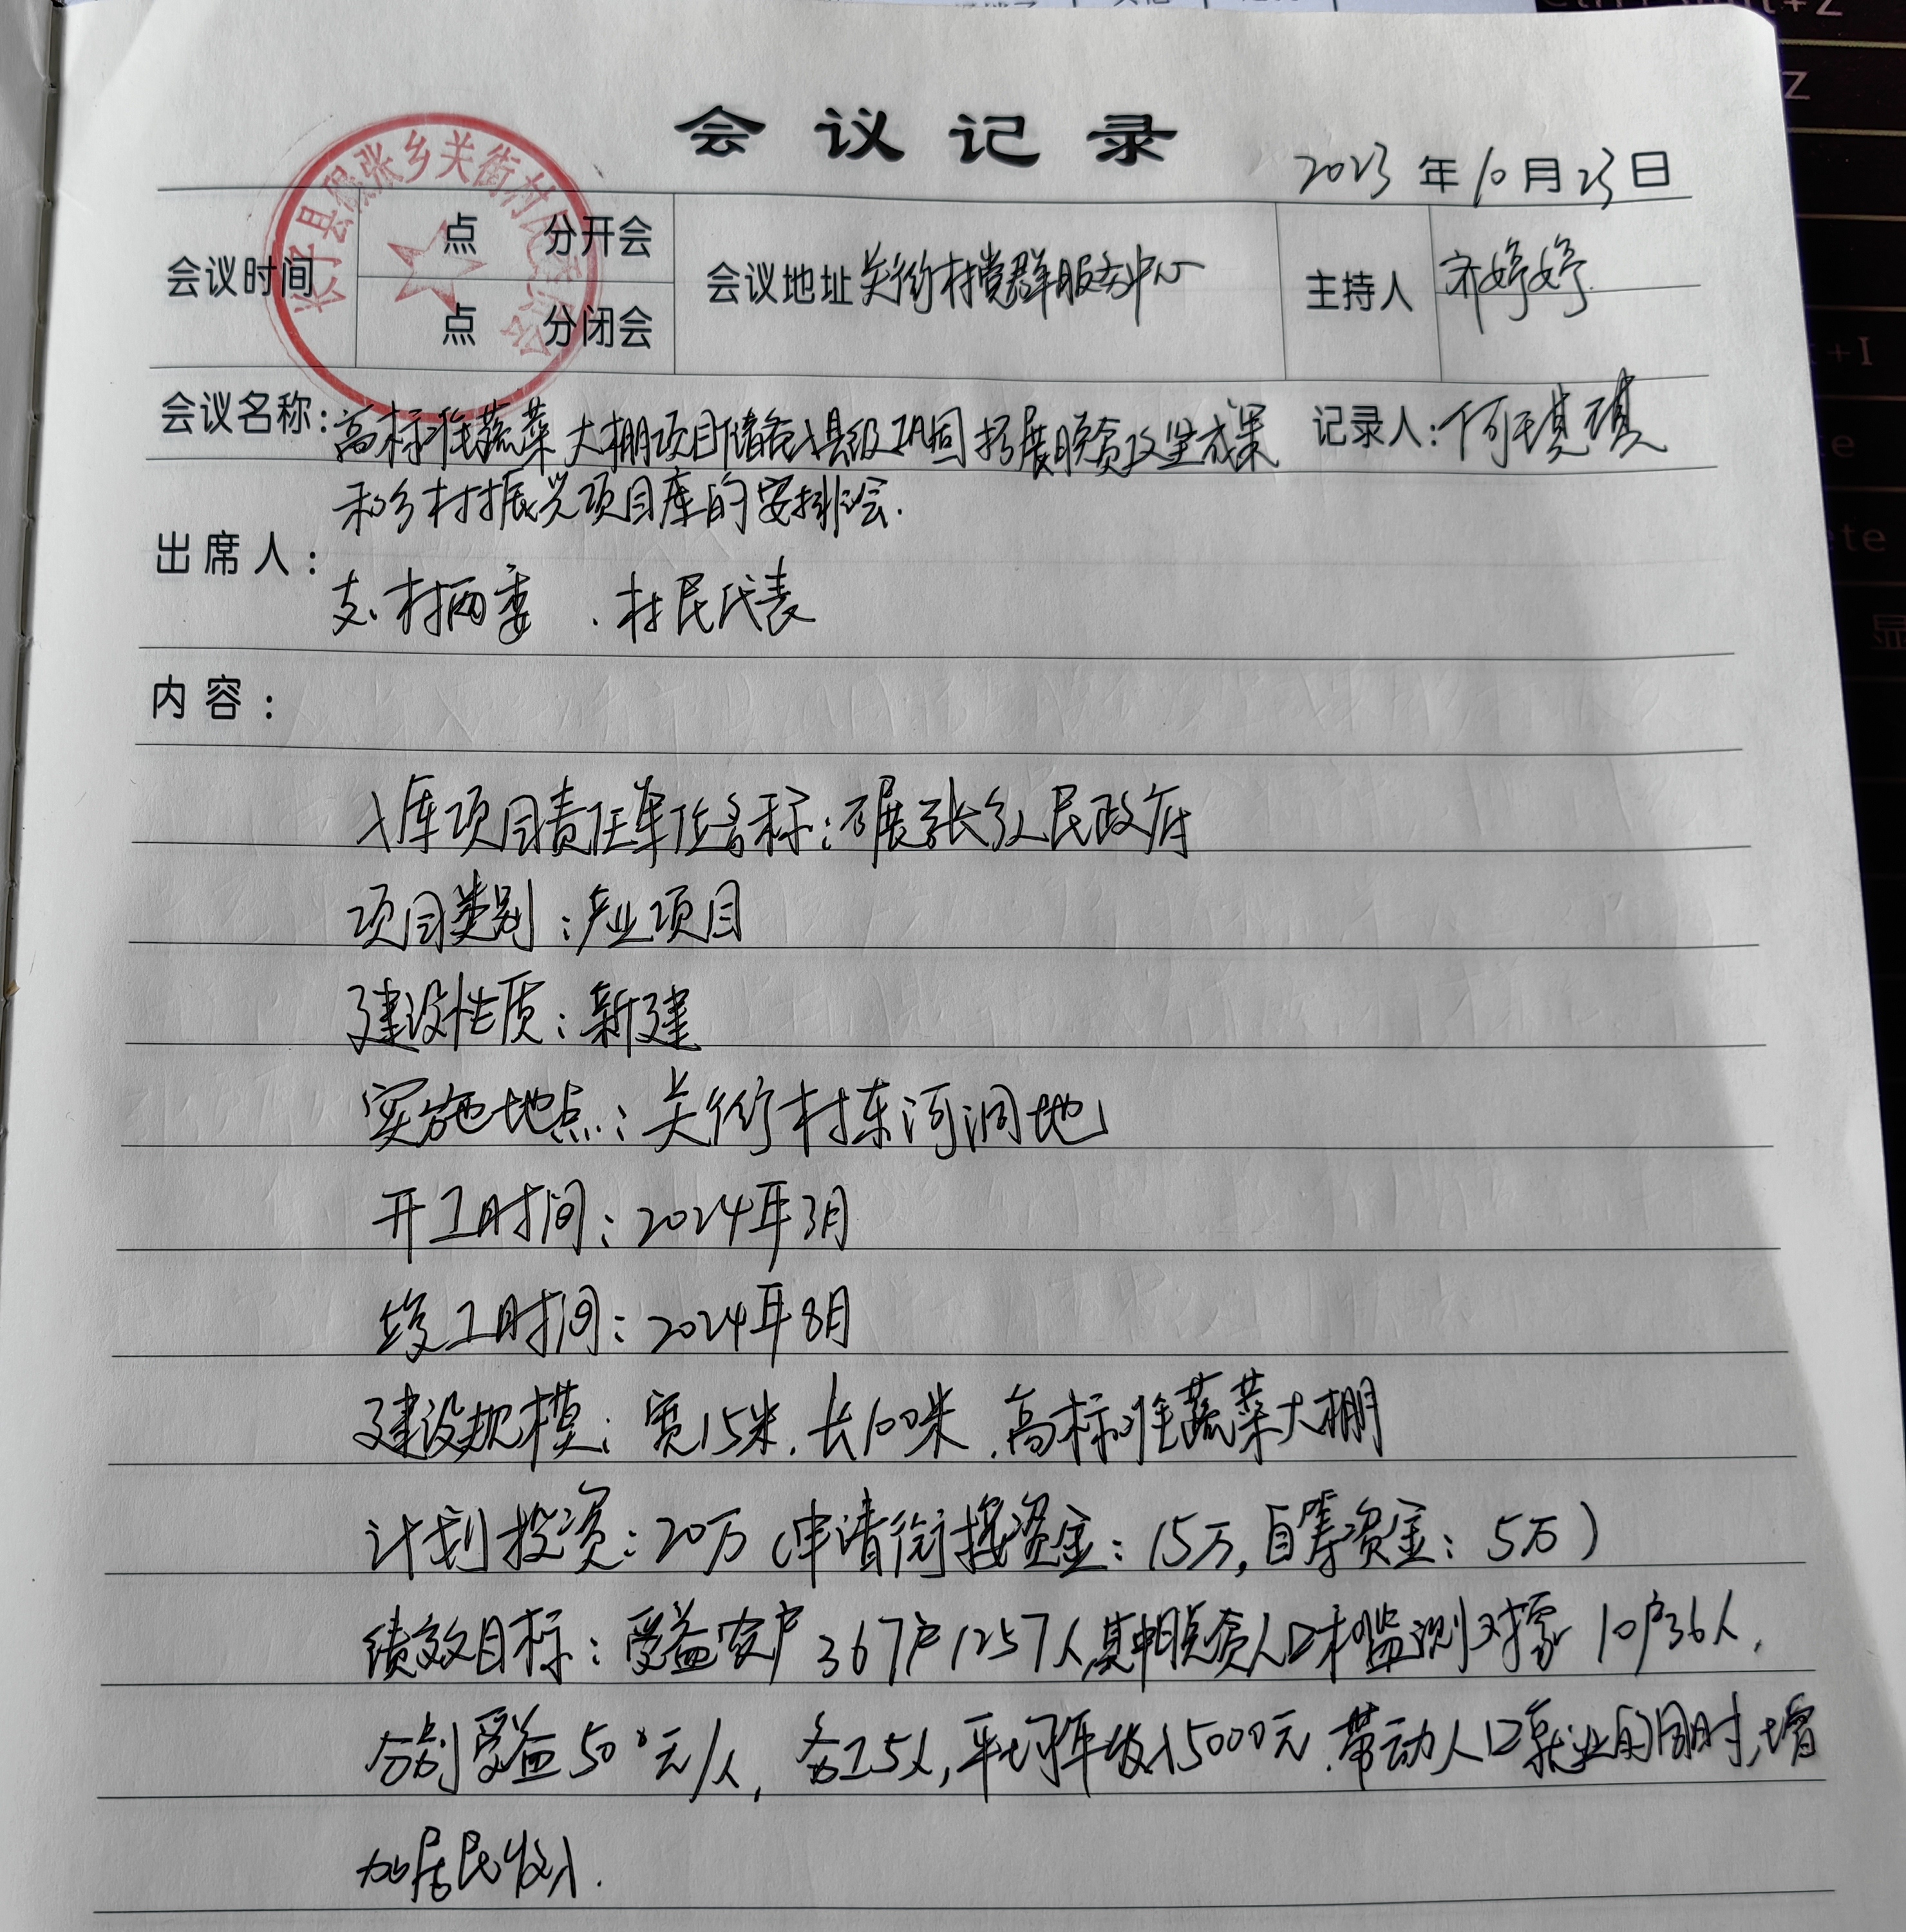 会议记录
2023年10月23日
会议时间 点 分开会 会议地址 关街村党群服务中心 主持人 婷婷
点 分闭会
会议名称: 高标准蔬菜大棚项目储备入县级巩固拓展脱贫攻坚成果 记录人: 何琪琪
和乡村振兴项目库的安排会.
出席人:
支.村两委 . 村民代表
内容:
入库项目责任单位名称:碾张乡人民政府
项目类别:产业项目
建设性质:新建
实施地点:关街村东河洞地
开工时间:2024年3月
竣工时间:2024年8月
建设规模:宽15米.长100米.高标准蔬菜大棚
计划投资:20万(申请衔接资金:15万,自筹资金:5万)
绩效目标:受益农户367户1257人,其中脱贫人口和监测对象10户36人,
分别受益500元/人, 务工5人,平均年收入5000元.带动人口就业的同时,增
加居民收入.
长子县碾张乡关街村民委员会